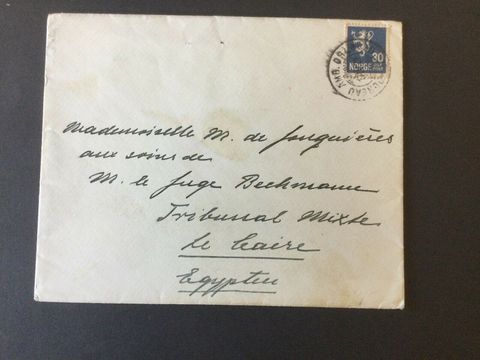 30
NORGE
Mademoiselle M. de Jonquières
aux soins de
M. le Juge Bechmann
Tribunal Mixte
Le Caire
Egypten